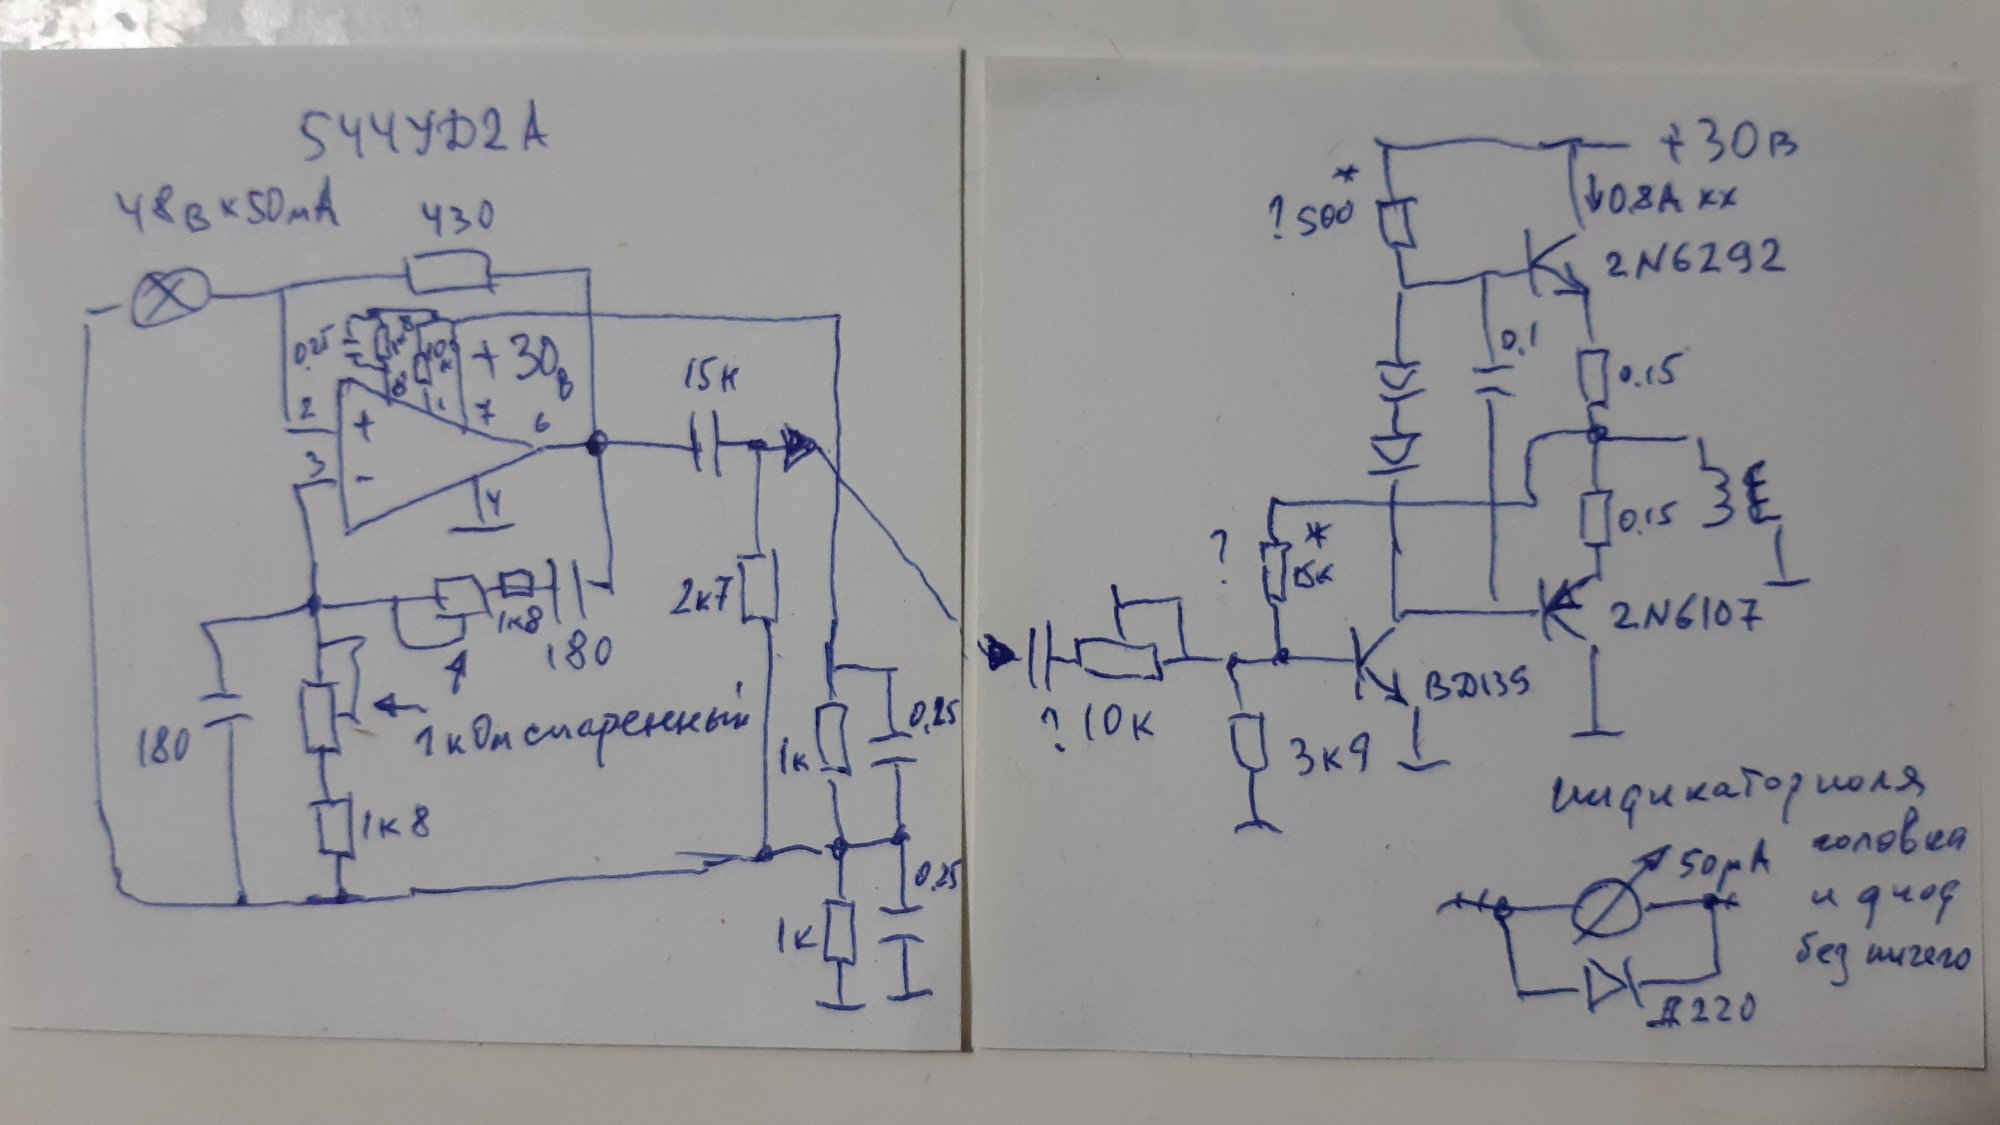 544УД2А
48в x 50мА
430
0.25
1к
10к
+30в
8
1
7
2
+
6
3
-
4
15н
2к7
1к8
180
180
1кОм спаренный
1к8
1к
0,25
1к
0,25
+30в
*
?500
0.8А хх
2N6292
0.1
0.15
0.15
?
*
15к
2N6107
BD139
? 10к
3к9
индикатор поля
головка
и диод
без ничего
50μА
Д220